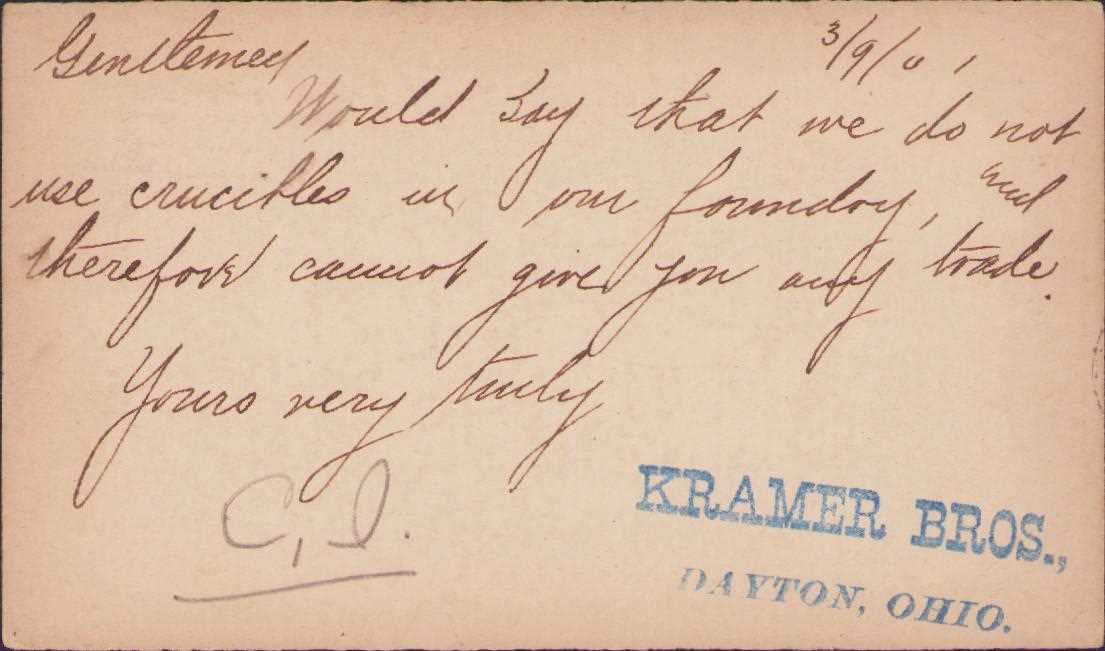 3/9/01
Gentlemen
Would say that we do not
use crucibles in our foundry, and
therefore cannot give you any trade.
Yours very truly
C, I.
KRAMER BROS.,
DAYTON, OHIO.